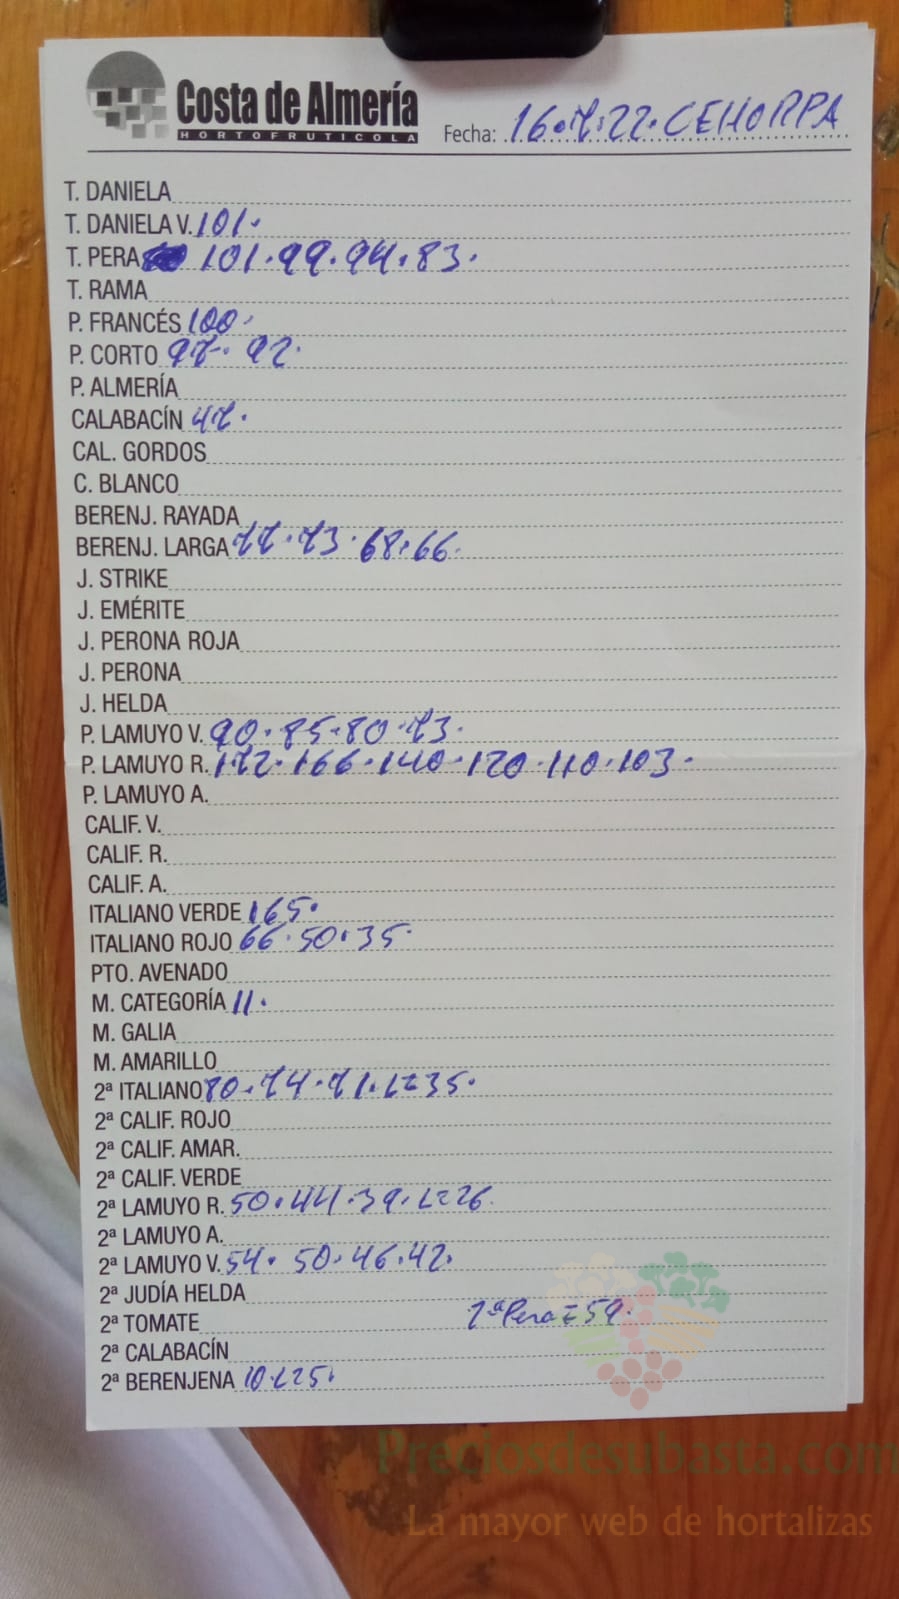 Costa de Almería
HORTOFRUTICOLA
Fecha: 16.7.22. CEHORPA
T. DANIELA
T. DANIELA V. 101.
T. PERA 101.99.94.83.
T. RAMA
P. FRANCÉS 100.
P. CORTO 97. 92.
P. ALMERÍA
CALABACÍN 47.
CAL. GORDOS
C. BLANCO
BERENJ. RAYADA
BERENJ. LARGA 77.73.68.66.
J. STRIKE
J. EMÉRITE
J. PERONA ROJA
J. PERONA
J. HELDA
P. LAMUYO V. 90.85.80.73.
P. LAMUYO R. 172.166.140.120.110.103.
P. LAMUYO A.
CALIF. V.
CALIF. R.
CALIF. A.
ITALIANO VERDE 165.
ITALIANO ROJO 66.50.35.
PTO. AVENADO
M. CATEGORÍA 11.
M. GALIA
M. AMARILLO
2ª ITALIANO 80.74.71.L=35.
2ª CALIF. ROJO
2ª CALIF. AMAR.
2ª CALIF. VERDE
2ª LAMUYO R. 50.44.39.L=26.
2ª LAMUYO A.
2ª LAMUYO V. 54. 50.46.42.
2ª JUDÍA HELDA
2ª TOMATE 2ª Pera=59.
2ª CALABACÍN
2ª BERENJENA 10.L25.
Preciosdesubasta.com
La mayor web de hortalizas